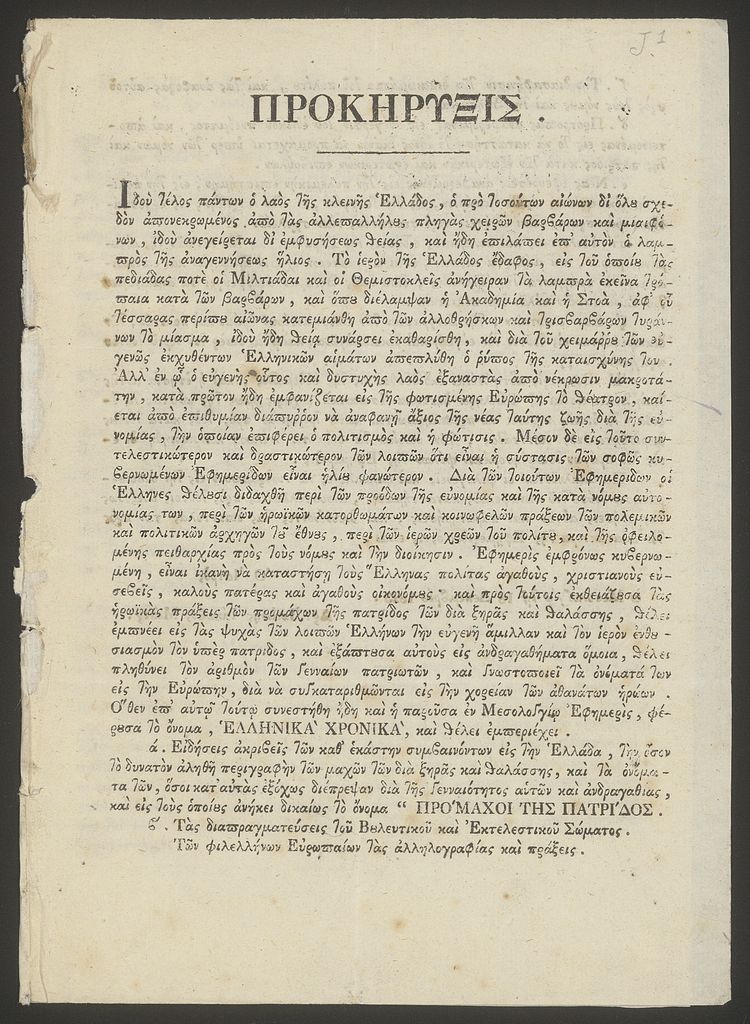 J.1
ΠΡΟΚΗΡΥΞΙΣ .
Ἰδοὺ τέλος πάντων ὁ λαὸς τῆς κλεινῆς Ἑλλάδος , ὁ πρὸ τοσούτων αἰώνων δι᾽ ὅλου σχε-
δὸν ἀπονεκρωμένος ἀπὸ τὰς ἀλλεπαλλήλους πληγὰς χειρῶν βαρβάρων καὶ μιαιφό-
νων , ἰδοὺ ἀνεγείρεται δι᾽ ἐμφυσήσεως θείας , καὶ ἤδη ἐπιλάπει ἐπ᾽ αὐτὸν ὁ λαμ-
πρὸς τῆς ἀναγεννήσεως ἥλιος . Τὸ ἱερὸν τῆς Ἑλλάδος ἔδαφος , εἰς τοῦ ὁποίου τὰς
πεδιάδας ποτὲ οἱ Μιλτιάδαι καὶ οἱ Θεμιστοκλεῖς ἀνήγειραν τὰ λαμπρὰ ἐκεῖνα τρό-
παια κατὰ τῶν βαρβάρων , καὶ ὅπου διέλαμψαν ἡ Ἀκαδημία καὶ ἡ Στοὰ , ἀφ᾽ οὗ
τέσσαρας περίπου αἰῶνας κατεμιάνθη ἀπὸ τῶν ἀλλοθρήσκων καὶ τρισβαρβάρων τυράν-
νων τὸ μίασμα , ἰδοὺ ἤδη θείᾳ συνάρσει ἐκαθαρίσθη , καὶ διὰ τοῦ χειμάῤῥου τῶν εὐ-
γενῶς ἐκχυθέντων Ἑλληνικῶν αἱμάτων ἀπεπλύθη ὁ ῥύπος τῆς καταισχύνης του .
Ἀλλ᾽ ἐν ᾧ ὁ εὐγενὴς οὗτος καὶ δυστυχὴς λαὸς ἐξαναστὰς ἀπὸ νέκρωσιν μακροτά-
την , κατὰ πρῶτον ἤδη ἐμφανίζεται εἰς τῆς φωτισμένης Εὐρώπης τὸ θέατρον , καί-
εται ἀπὸ ἐπιθυμίαν διάπυρρον νὰ ἀναφανῇ ἄξιος τῆς νέας ταύτης ζωῆς διὰ τῆς εὐ-
νομίας , τὴν ὁποίαν ἐπιφέρει ὁ πολιτισμὸς καὶ ἡ φώτισις . Μέσον δὲ εἰς τοῦτο συν-
τελεστικώτερον καὶ δραστικώτερον τῶν λοιπῶν ὅτι εἶναι ἡ σύστασις τῶν σοφῶς κυ-
βερνωμένων Ἐφημερίδων εἶναι ἡλίου φανώτερον . Διὰ τῶν τοιούτων Ἐφημερίδων οἱ
Ἕλληνες θέλουσι διδαχθῆ περὶ τῶν προόδων τῆς εὐνομίας καὶ τῆς κατὰ νόμους αὐτο-
νομίας των , περὶ τῶν ἡρωϊκῶν κατορθωμάτων καὶ κοινωφελῶν πράξεων τῶν πολεμικῶν
καὶ πολιτικῶν ἀρχηγῶν τοῦ ἔθνους , περὶ τῶν ἱερῶν χρεῶν τοῦ πολίτου , καὶ τῆς ὀφειλο-
μένης πειθαρχίας πρὸς τοὺς νόμους καὶ τὴν διοίκησιν . Ἐφημερὶς ἐμφρόνως κυβερνω-
μένη , εἶναι ἱκανὴ νὰ καταστήσῃ τοὺς Ἕλληνας πολίτας ἀγαθοὺς , χριστιανοὺς εὐ-
σεβεῖς , καλοὺς πατέρας καὶ ἀγαθοὺς οἰκονόμους · καὶ πρὸς τούτοις ἐκθειάζουσα τὰς
ἡρωϊκὰς πράξεις τῶν προμάχων τῆς πατρίδος τῶν διὰ ξηρᾶς καὶ θαλάσσης , θέλει
ἐμπνέει εἰς τὰς ψυχὰς τῶν λοιπῶν Ἑλλήνων τὴν εὐγενῆ ἅμιλλαν καὶ τὸν ἱερὸν ἐνθου-
σιασμὸν τὸν ὑπὲρ πατρίδος , καὶ ἐξάπτουσα αὐτοὺς εἰς ἀνδραγαθήματα ὅμοια , θέλει
πληθύνει τὸν ἀριθμὸν τῶν γενναίων πατριωτῶν , καὶ γνωστοποιεῖ τὰ ὀνόματά των
εἰς τὴν Εὐρώπην , διὰ νὰ συγκαταριθμῶνται εἰς τὴν χορείαν τῶν ἀθανάτων ἡρώων .
Ὅθεν ἐπ᾽ αὐτῷ τούτῳ συνεστήθη ἤδη καὶ ἡ παροῦσα ἐν Μεσολογγίῳ Ἐφημερὶς , φέ-
ρουσα τὸ ὄνομα , ἙΛΛΗΝΙΚᾺ ΧΡΟΝΙΚᾺ , καὶ θέλει ἐμπεριέχει .
ά. Εἰδήσεις ἀκριβεῖς τῶν καθ᾽ ἑκάστην συμβαινόντων εἰς τὴν Ἑλλάδα , τὴν ὅσον
τὸ δυνατὸν ἀληθῆ περιγραφὴν τῶν μαχῶν τῶν διὰ ξηρᾶς καὶ θαλάσσης , καὶ τὰ ὀνόμα-
τα τῶν , ὅσοι κατ᾽ αὐτὰς ἐξόχως διέπρεψαν διὰ τῆς γενναιότητος αὐτῶν καὶ ἀνδραγαθίας ,
καὶ εἰς τοὺς ὁποίους ἀνήκει δικαίως τὸ ὄνομα “ ΠΡΌΜΑΧΟΙ ΤΗΣ ΠΑΤΡΊΔΟΣ .
β´. Τὰς διαπραγματεύσεις τοῦ Βουλευτικοῦ καὶ Ἐκτελεστικοῦ Σώματος .
Τῶν φιλελλήνων Εὐρωπαίων τὰς ἀλληλογραφίας καὶ πράξεις .